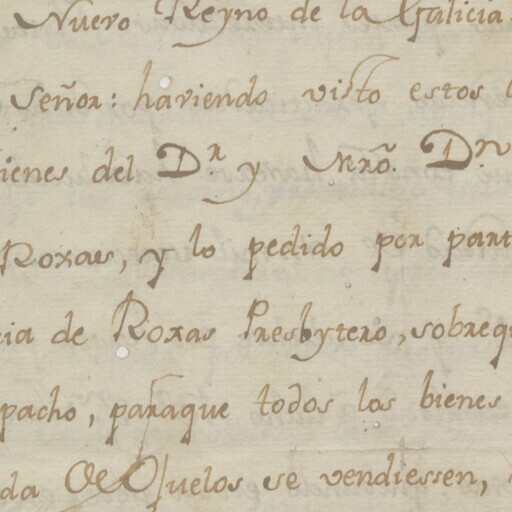 Nuevo Reyno de la Galicia
Señor: haviendo visto estos
ienes del Dr. y Mrô. Dn.
Roxas, y lo pedido por part
cia de Roxas Presbytero, sobreq
pacho, paraque todos los bienes
da Ojuelos se vendiessen,